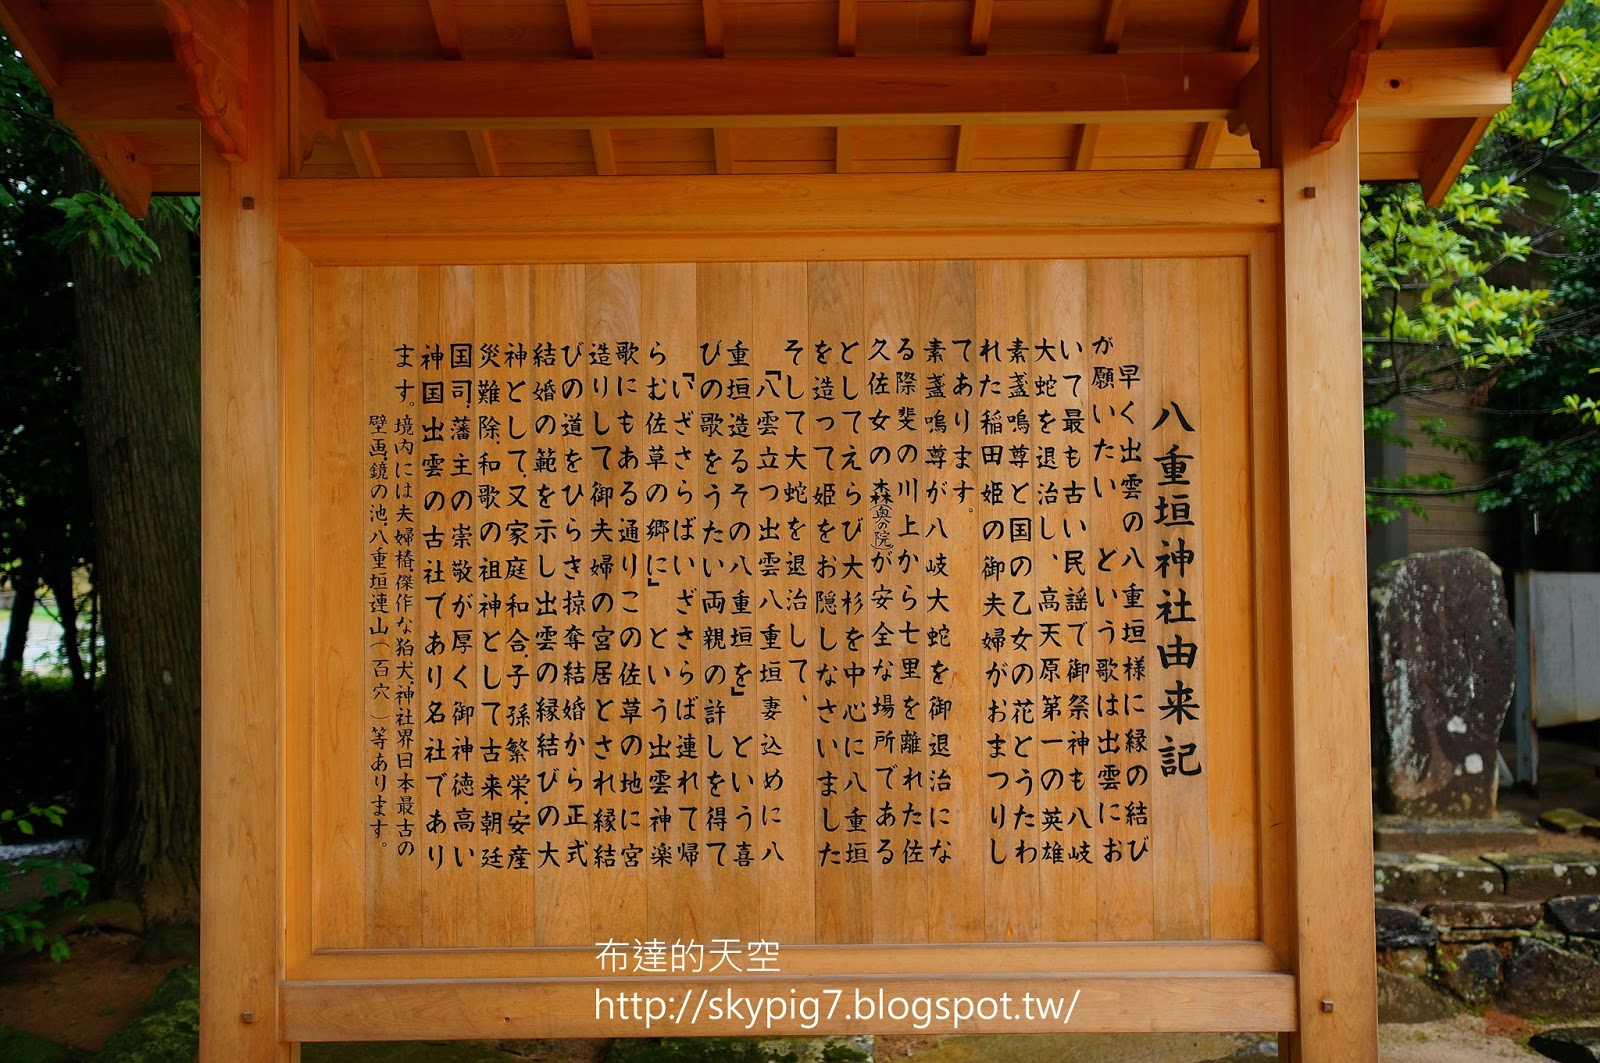 八重垣神社由来記
早く出雲の八重垣様に縁の結び
が願いたい　という歌は出雲にお
いて最も古い民謡で御祭神も八岐
大蛇を退治し、高天原第一の英雄
素盞嗚尊と国の乙女の花とうたわ
れた稲田姫の御夫婦がおまつりし
てあります。
素盞嗚尊が八岐大蛇を御退治にな
る際斐の川上から七里を離れた佐
久佐女の森(奥の院)が安全な場所である
としてえらび大杉を中心に八重垣
を造って姫をお隠しなさいました
そして大蛇を退治して、
「八雲立つ出雲八重垣妻込めに八
重垣造るその八重垣を」という喜
びの歌をうたい両親の許しを得て
「いざさらばいざさらば連れて帰
らむ佐草の郷に」という出雲神楽
歌にもある通りこの佐草の地に宮
造りして御夫婦の宮居とされ縁結
びの道をひらき掠奪結婚から正式
結婚の範を示し出雲の縁結びの大
神として、又家庭和合、子孫繁栄、安産
災難除、和歌の祖神として古来朝廷
国司、藩主の崇敬が厚く御神徳高い
神国出雲の古社であり名社であり
ます。境内には夫婦椿、傑作な狛犬、神社界日本最古の
壁画、鏡の池、八重垣連山(百穴)等あります。
布達的天空
http://skypig7.blogspot.tw/